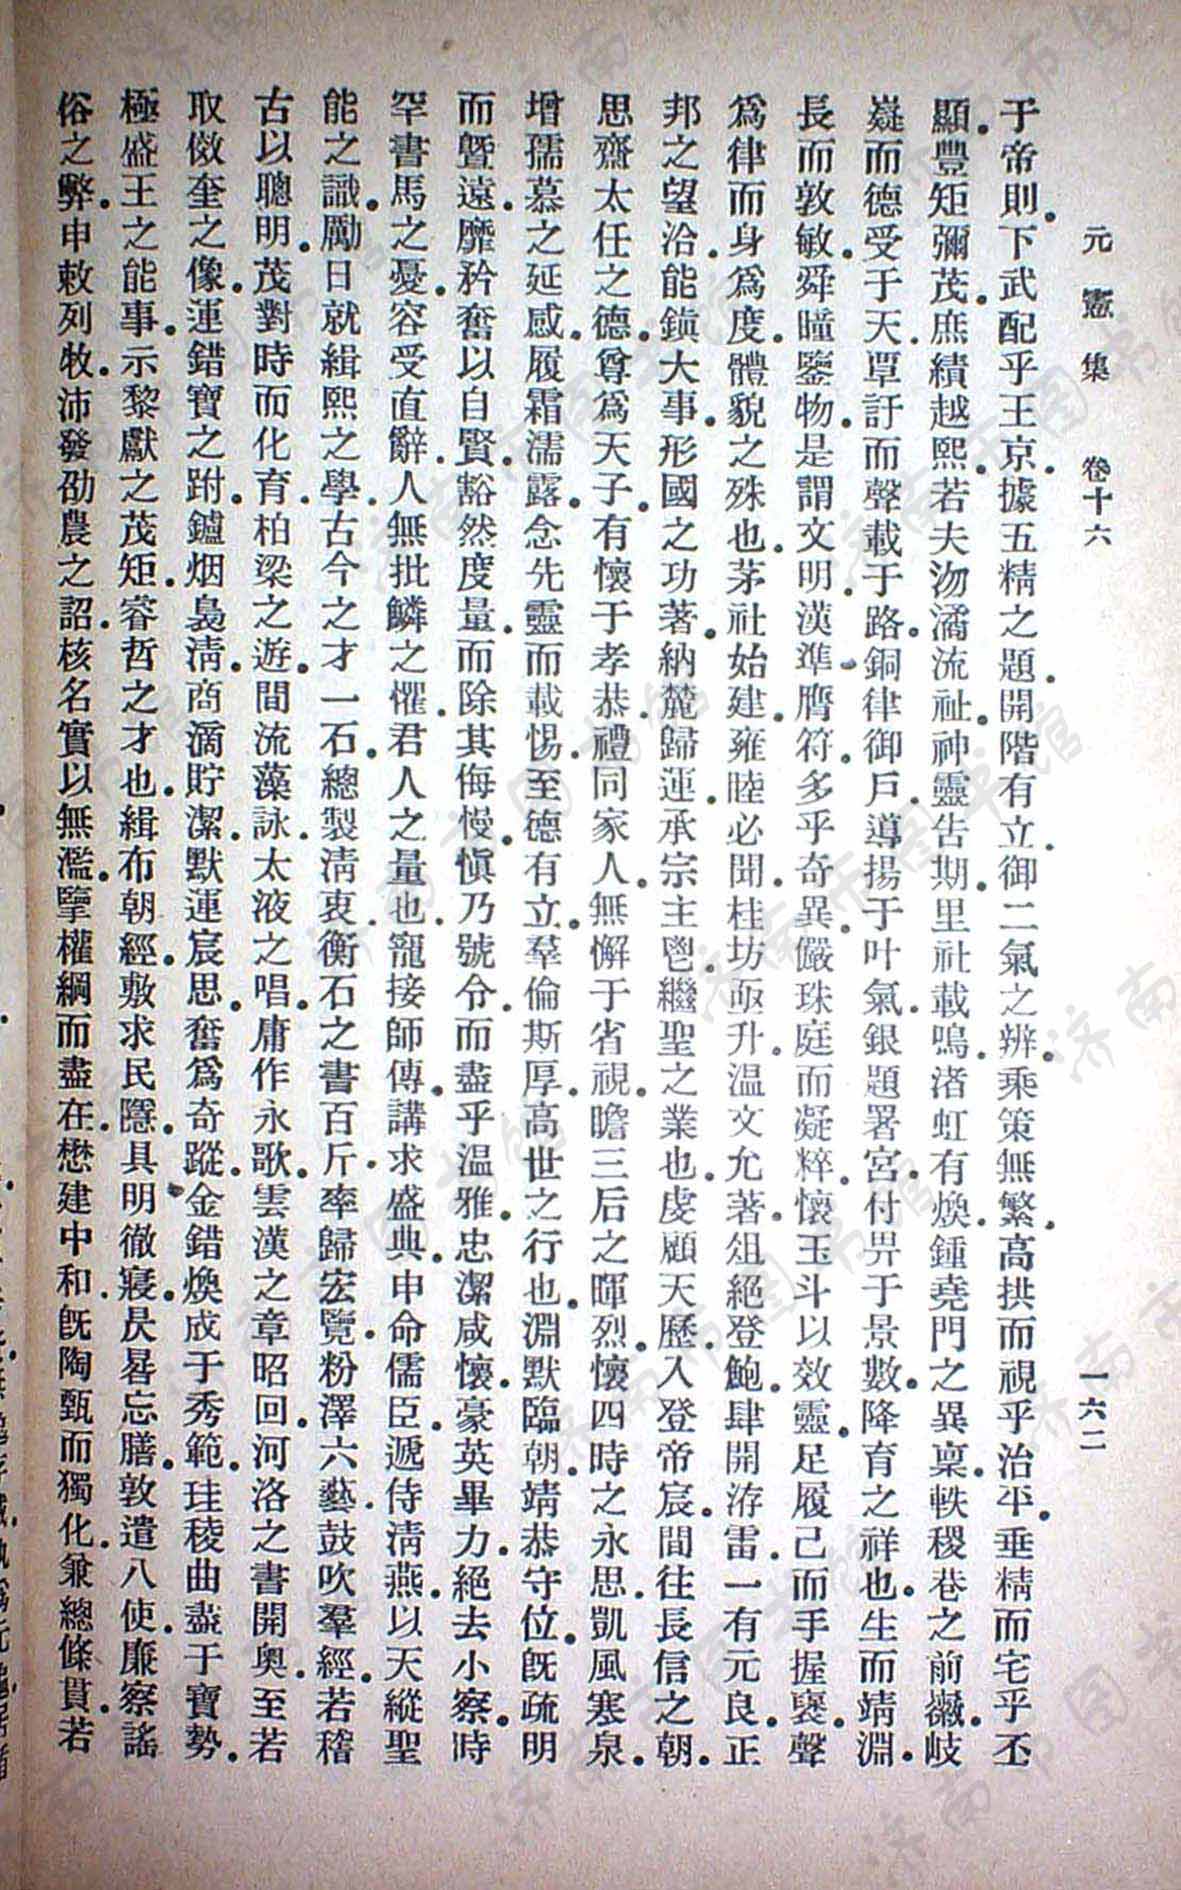 元憲集 卷十六 一六二
于帝則。下武配乎王京。據五精之題。開階有立。御二氣之辨。乘策無繁。高拱而視乎治平。垂精而宅乎丕
顯。豐矩彌茂。庶績越熙。若夫沕潏流祉。神靈告期。里社載鳴。渚虹有煥。鍾堯門之異稟。軼稷巷之前徽。岐
嶷而德受于天。覃訏而聲載于路。銅律御戶。導揚于叶氣。銀題署宮。付畀于景數。降育之祥也。生而靖淵。
長而敦敏。舜瞳鑒物。是謂文明。漢準膺符。多乎奇異。儼珠庭而凝粹。懷玉斗以效靈。足履己而手握褒。聲
爲律而身爲度。體貌之殊也。茅社始建。雍睦必聞。桂坊亟升。温文允著。俎絕登鮑。肆開洊雷。一有元良。正
邦之望洽。能鎮大事。形國之功著。納麓歸運。承宗主鬯。繼聖之業也。虔顧天歷。入登帝宸。間往長信之朝。
思齋太任之德。尊爲天子。有懷于孝恭。禮同家人。無懈于省視。瞻三后之暉烈。懷四時之永思。凱風寒泉。
增孺慕之延感。履霜濡露。念先靈而載惕。至德有立。羣倫斯厚。高世之行也。淵默臨朝。靖恭守位。旣疏明
而曁遠。靡矜奮以自賢。豁然度量。而除其侮慢。愼乃號令。而盡乎温雅。忠潔咸懷。豪英畢力。絕去小察。時
罕書馬之憂。容受直辭。人無批鱗之懼。君人之量也。寵接師傳。講求盛典。申命儒臣。遞侍淸燕。以天縱聖
能之識。勵日就緝熙之學。古今之才一石。總製淸衷。衡石之書百斤。率歸宏覽。粉澤六藝。鼓吹羣經。若稽
古以聰明。茂對時而化育。柏梁之遊。間流藻詠。太液之唱。庸作永歌。雲漢之章昭回。河洛之書開奥。至若
取倣奎之像。運錯寶之跗。鑪烟裊淸。商滴貯潔。默運宸思。奮爲奇蹤。金錯煥成于秀範。珪稜曲盡于寶勢。
極盛王之能事。示黎獻之茂矩。睿哲之才也。緝布朝經。敷求民隱。具明徹寢。昃晷忘膳。敦遣八使。廉察謠
俗之弊。申敕列牧。沛發劭農之詔。核名實以無濫。擥權綱而盡在。懋建中和。旣陶甄而獨化。兼總條貫。若